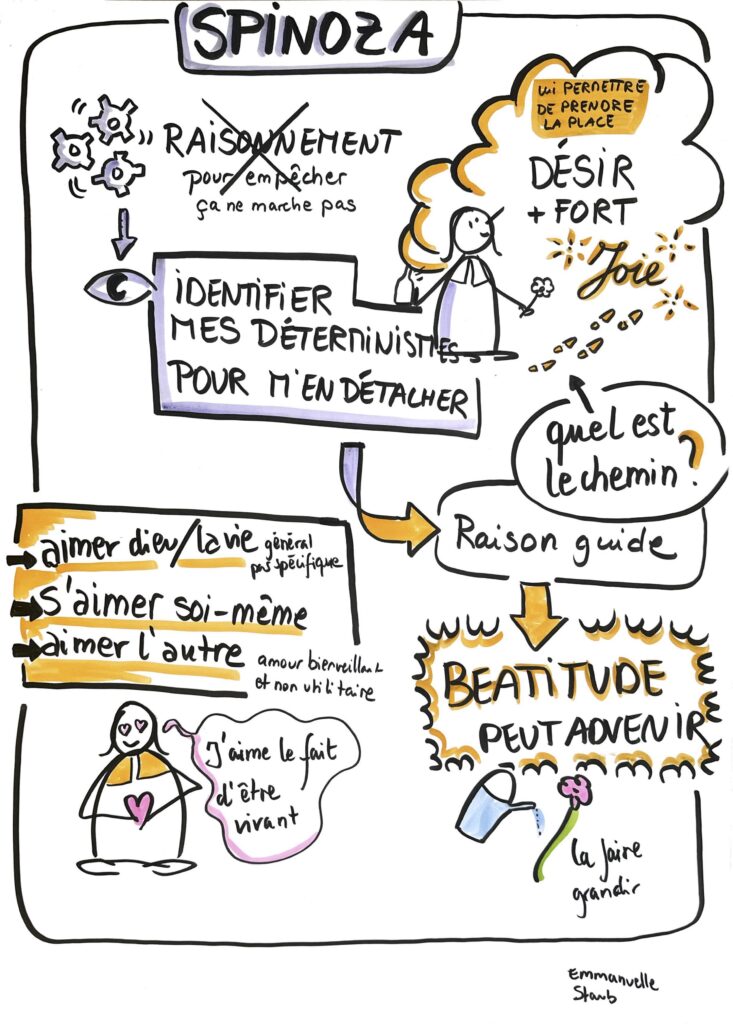 SPINOZA
RAISONNEMENT
pour empêcher
ça ne marche pas
lui PERMETTRE
DE PRENDRE
LA PLACE
DÉSIR
+ FORT
Joie
IDENTIFIER
MES DÉTERMINISMES
POUR M'EN DÉTACHER
quel est
le chemin ?
Raison guide
aimer dieu/la vie général
pas spécifique
s'aimer soi-même
aimer l'autre
amour bienveillant
et non utilitaire
BEATITUDE
PEUT ADVENIR
J'aime le fait
d'être
vivant
la faire
grandir
Emmanuelle
Staub